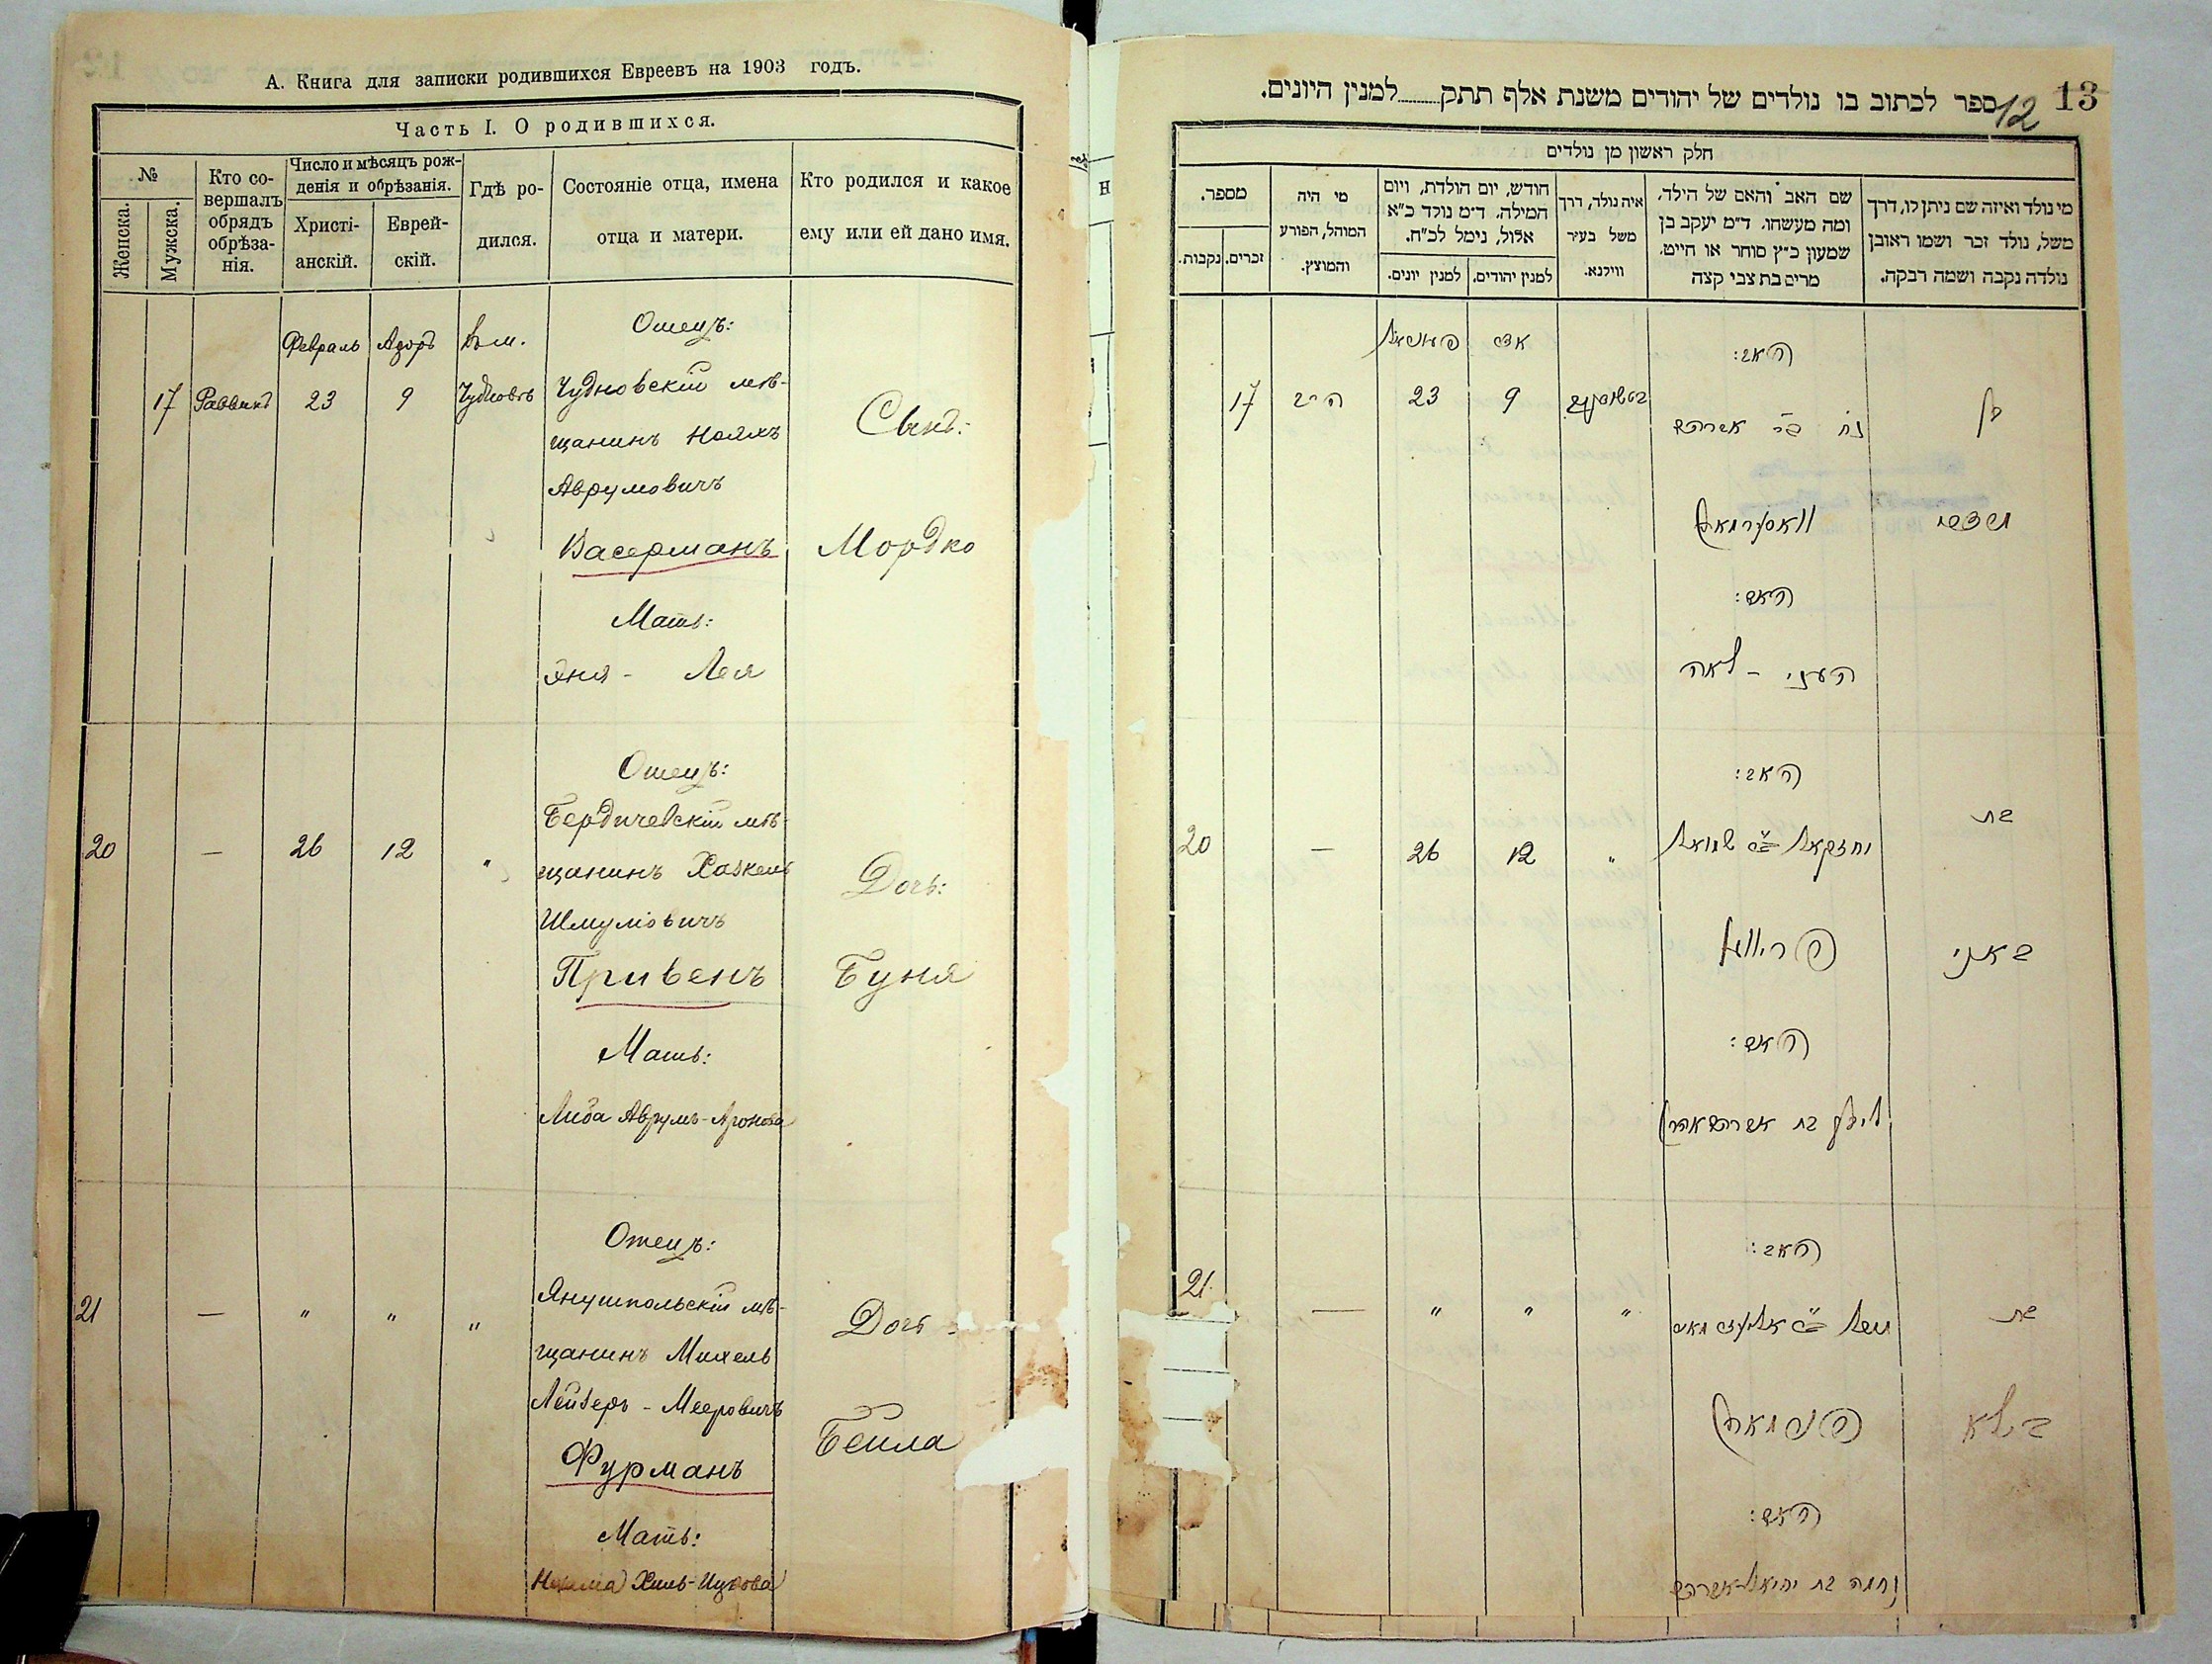 А. Книга для записки родившихся Евреевъ на 1903 годъ.
Часть I. О родившихся.
№
Женска.
Мужска.
Кто со-
вершалъ
обрядъ
обрѣза-
нія.
Число и мѣсяцъ рож-
денія и обрѣзанія.
Христі-
анскій.
Еврей-
скій.
Гдѣ ро-
дился.
Состояніе отца, имена
отца и матери.
Кто родился и какое
ему или ей дано имя.
Февраль Адоръ въ м. Отецъ:
17 Раввинъ 23 9 Чудновѣ Чудновскій мѣ-
щанинъ Ноахъ
Аврумовичъ
Сынъ:
Васерманъ Мордко
Мать:
Лея
Отецъ:
Бердичевскій мѣ-
20 — 26 12 " щанинъ Хаскель
Дочь:
Шмулiовичъ
Привенъ Буня
Мать:
Либа Аврумъ-Аронова
Отецъ:
21 — " " " Янушпольскій мѣ-
Дочь
щанинъ Михель
Лейзеръ-Мееровичъ
Бейла
Фурманъ
Мать:
13
12
ספר לכתוב בו נולדים של יהודים משנת אלף תתק למנין היונים.
חלק ראשון מן נולדים
מי נולד ואיזה שם ניתן לו, דרך
משל, נולד זכר ושמו ראובן
נולדה נקבה ושמה רבקה.
שם האב והאם של הילד,
ומה מעשהו. ד״מ יעקב בן
שמעון כ״ץ סוחר או חייט.
מרים בת צבי קצה
איה נולד, דרך
משל בעיר
ווילנא.
חודש, יום הולדת, ויום
המילה. ד״מ נולד כ״א
אלול, נימל לכ״ח.
למנין יהודים.
למנין יונים.
מי היה
המוהל, הפורע
והמוצץ.
מספר.
זכרים.
נקבות.
האב:
17 הרב 23 9
בן
נח בר אברהם
וואסערמאן
מרדכי
האם:
לאה
האב:
20 — 26 12 " יחזקאל שמואל
בת
פריווען
באני
האם:
ליבע בת אברהם אהרן
האב:
21 — " " "
בת
פורמאן
ביילא
האם:
נחמה בת